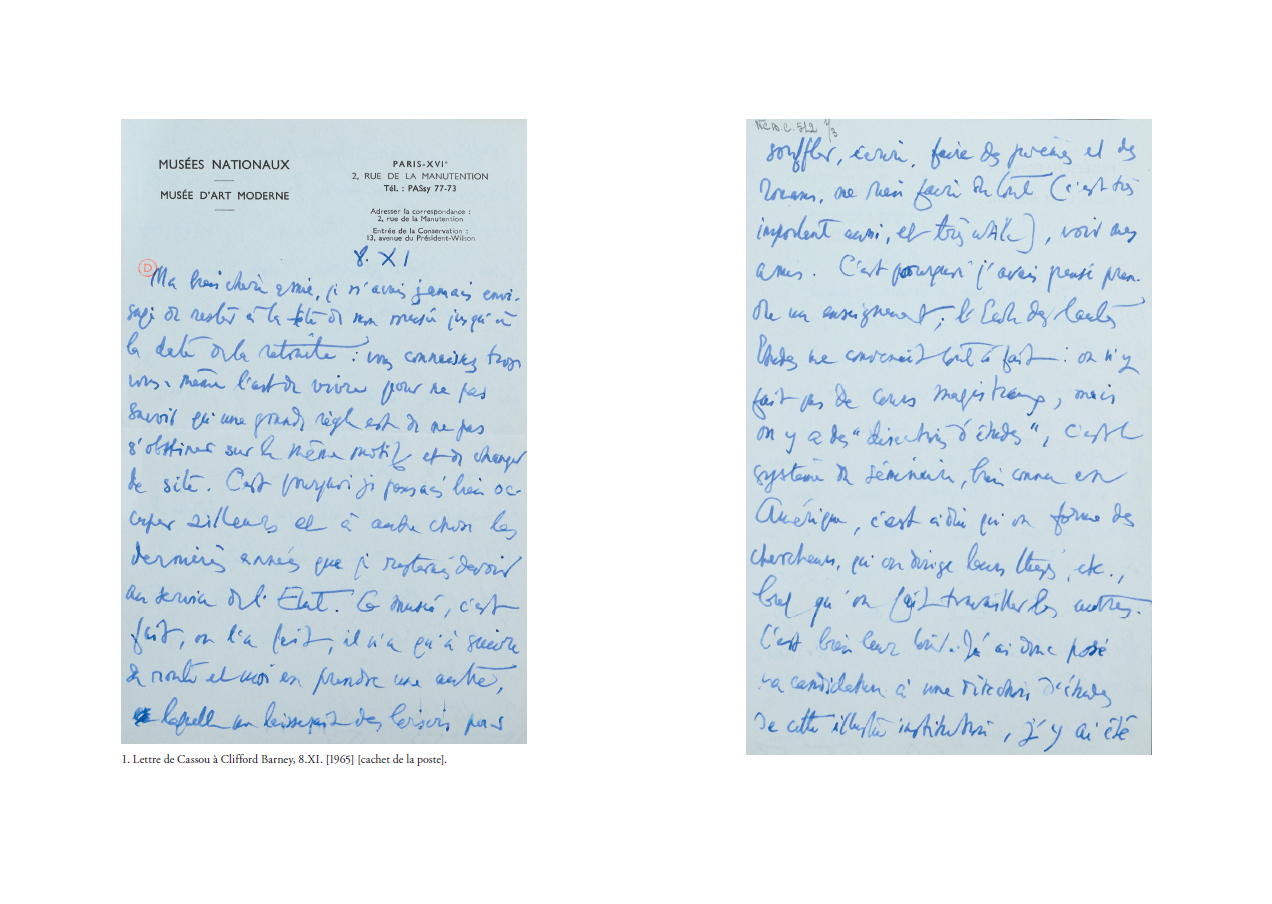 MUSÉES NATIONAUX
MUSÉE D'ART MODERNE
PARIS-XVIe
2, RUE DE LA MANUTENTION
Tél. : PASsy 77-73
Adresser la correspondance :
2, rue de la Manutention
Entrée de la Conservation :
13, avenue du Président-Wilson
8. XI
D
Ma bien chère amie, je n'avais jamais envi-
sagé de rester à la tête de mon musée jusqu'à
la date de la retraite : vous connaissez trop
vous-même l'art de vivre pour ne pas
savoir qu'une grande règle est de ne pas
s'obstiner sur le même motif et de changer
de site. C'est pourquoi je pensais bien oc-
cuper ailleurs et à autre chose les
dernières années que je resterais devoir
au service de l'Etat. Ce musée, c'est
fait, on l'a fait, il n'a qu'à suivre
sa route et moi en prendre une autre,
laquelle me laisserait des loisirs pour
1. Lettre de Cassou à Clifford Barney, 8.XI. [1965] [cachet de la poste].
NCB. C. 512 2/3
souffler, écrire, faire des poèmes et des
romans, ne rien faire du tout (c'est très
important aussi, et très utile), voir mes
amis. C'est pourquoi j'avais pensé pren-
dre un enseignement ; l'Ecole des Hautes
Etudes me convenait tout à fait : on n'y
fait pas de cours magistraux, mais
on y a des "directions d'études", c'est le
système de séminaire, bien connu en
Amérique, c'est à dire qu'on forme des
chercheurs, qu'on dirige leurs thèses, etc.,
bref qu'on fait travailler les autres.
C'est bien leur tour. J'ai donc posé
ma candidature à une direction d'études
de cette illustre institution, j'y ai été